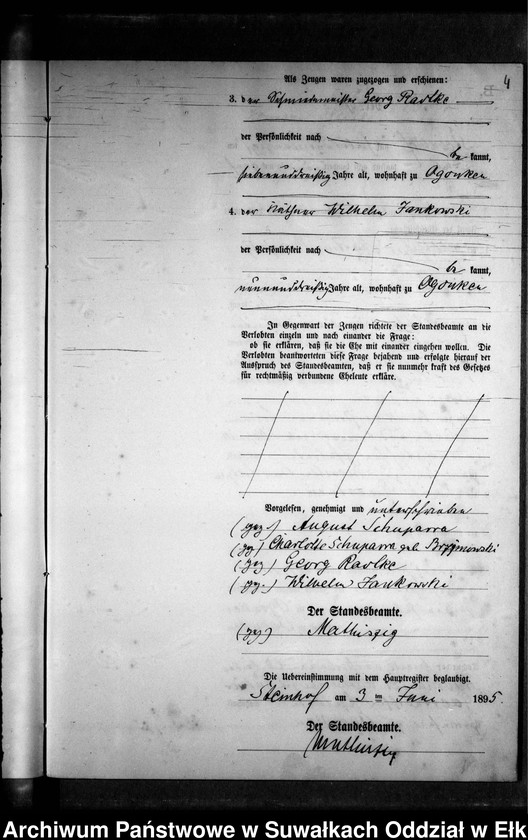 4
Als Zeugen waren zugezogen und erschienen:
3. der Schmiedemeister Georg Radtke
der Persönlichkeit nach
be kannt,
siebenunddreißig Jahre alt, wohnhaft zu Ogonken
4. der Käthner Wilhelm Jankowski
der Persönlichkeit nach
be kannt,
neununddreißig Jahre alt, wohnhaft zu Ogonken
In Gegenwart der Zeugen richtete der Standesbeamte an die
Verlobten einzeln und nach einander die Frage:
ob sie erklären, daß sie die Ehe mit einander eingehen wollen. Die
Verlobten beantworteten diese Frage bejahend und erfolgte hierauf der
Ausspruch des Standesbeamten, daß er sie nunmehr kraft des Gesetzes
für rechtmäßig verbundene Eheleute erkläre.
Vorgelesen, genehmigt und unterschrieben
(gez.) August Schuparra
(gez) Charlotte Schuparra geb. Brzymowski
(gez) Georg Radtke
(gez.) Wilhelm Jankowski
Der Standesbeamte.
(gez)
Die Uebereinstimmung mit dem Hauptregister beglaubigt.
Steinhof am 3 ten Juni 1895.
Der Standesbeamte.
Archiwum Państwowe w Suwałkach Oddział w Ełk